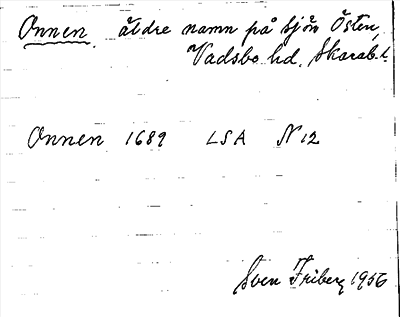 Onnen, äldre namn på sjön Östen,
Vadsbo hd, Skarab. l.
Onnen 1689 LSA N 12
Sven Friberg 1956